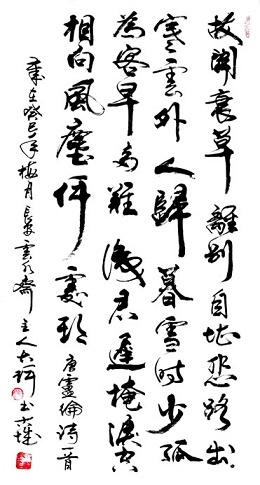 故關衰草離別自堪悲路出
寒雲外人歸暮雪時少孤
為客早多難識君遲掩淚空
相向風塵何處期 唐盧綸詩一首
歲在癸巳年梅月長安雲水齋主人書